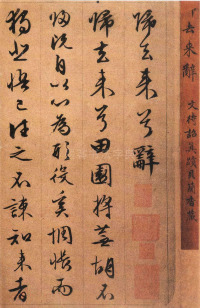 歸去來辭
文待詔真蹟
歸去來兮辭
歸去來兮田園將蕪胡不
歸既自以心為形役奚惆悵而
獨悲悟已往之不諫知來者